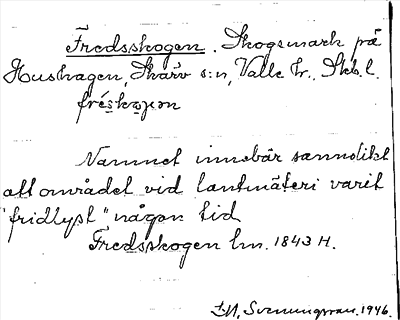 Fredsskogen. Skogsmark på
Hushagen, Skärv s:n, Valle hr., Skb. l.
fréskoɡən
Namnet innebär sannolikt
att området vid lantmäteri varit
"fridlyst" någon tid.
Fredsskogen lm. 1843 H.
Svenungsson. 1946.